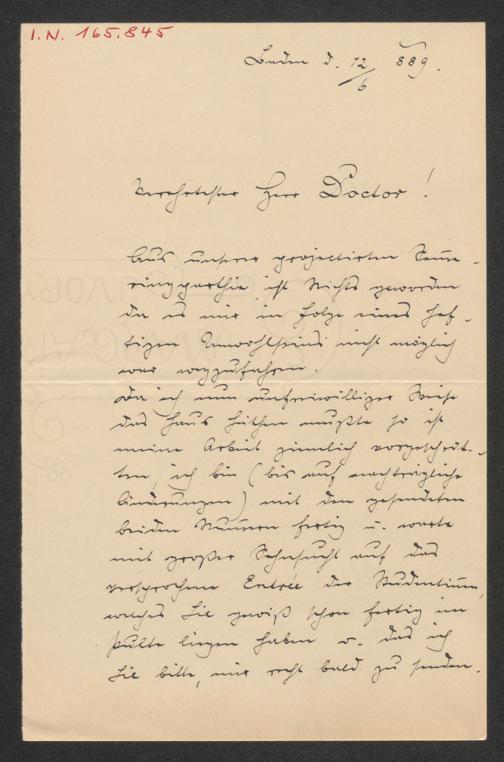 I.N. 165.845
Baden d. 12/6 889.
Verehrtester Herr Doctor!
Aus unserer projectirten Semme-
ringparthie ist Nichts geworden
da es mir in Folge eines hef-
tigen Unwohlseins nicht möglich
war wegzufahren.
Da ich nun unfreiwilliger Weise
das Haus hüthen mußte so ist
meine Arbeit ziemlich vorgeschrit-
ten, ich bin (bis auf nachträgliche
Änderungen) mit den gesendeten
beiden Nummern fertig u. warte
mit großer Sehnsucht auf das
versprochene Entrée der Studentinn,
welches Sie gewiß schon fertig im
Pulte liegen haben u. das ich
Sie bitte, mir recht bald zu senden.